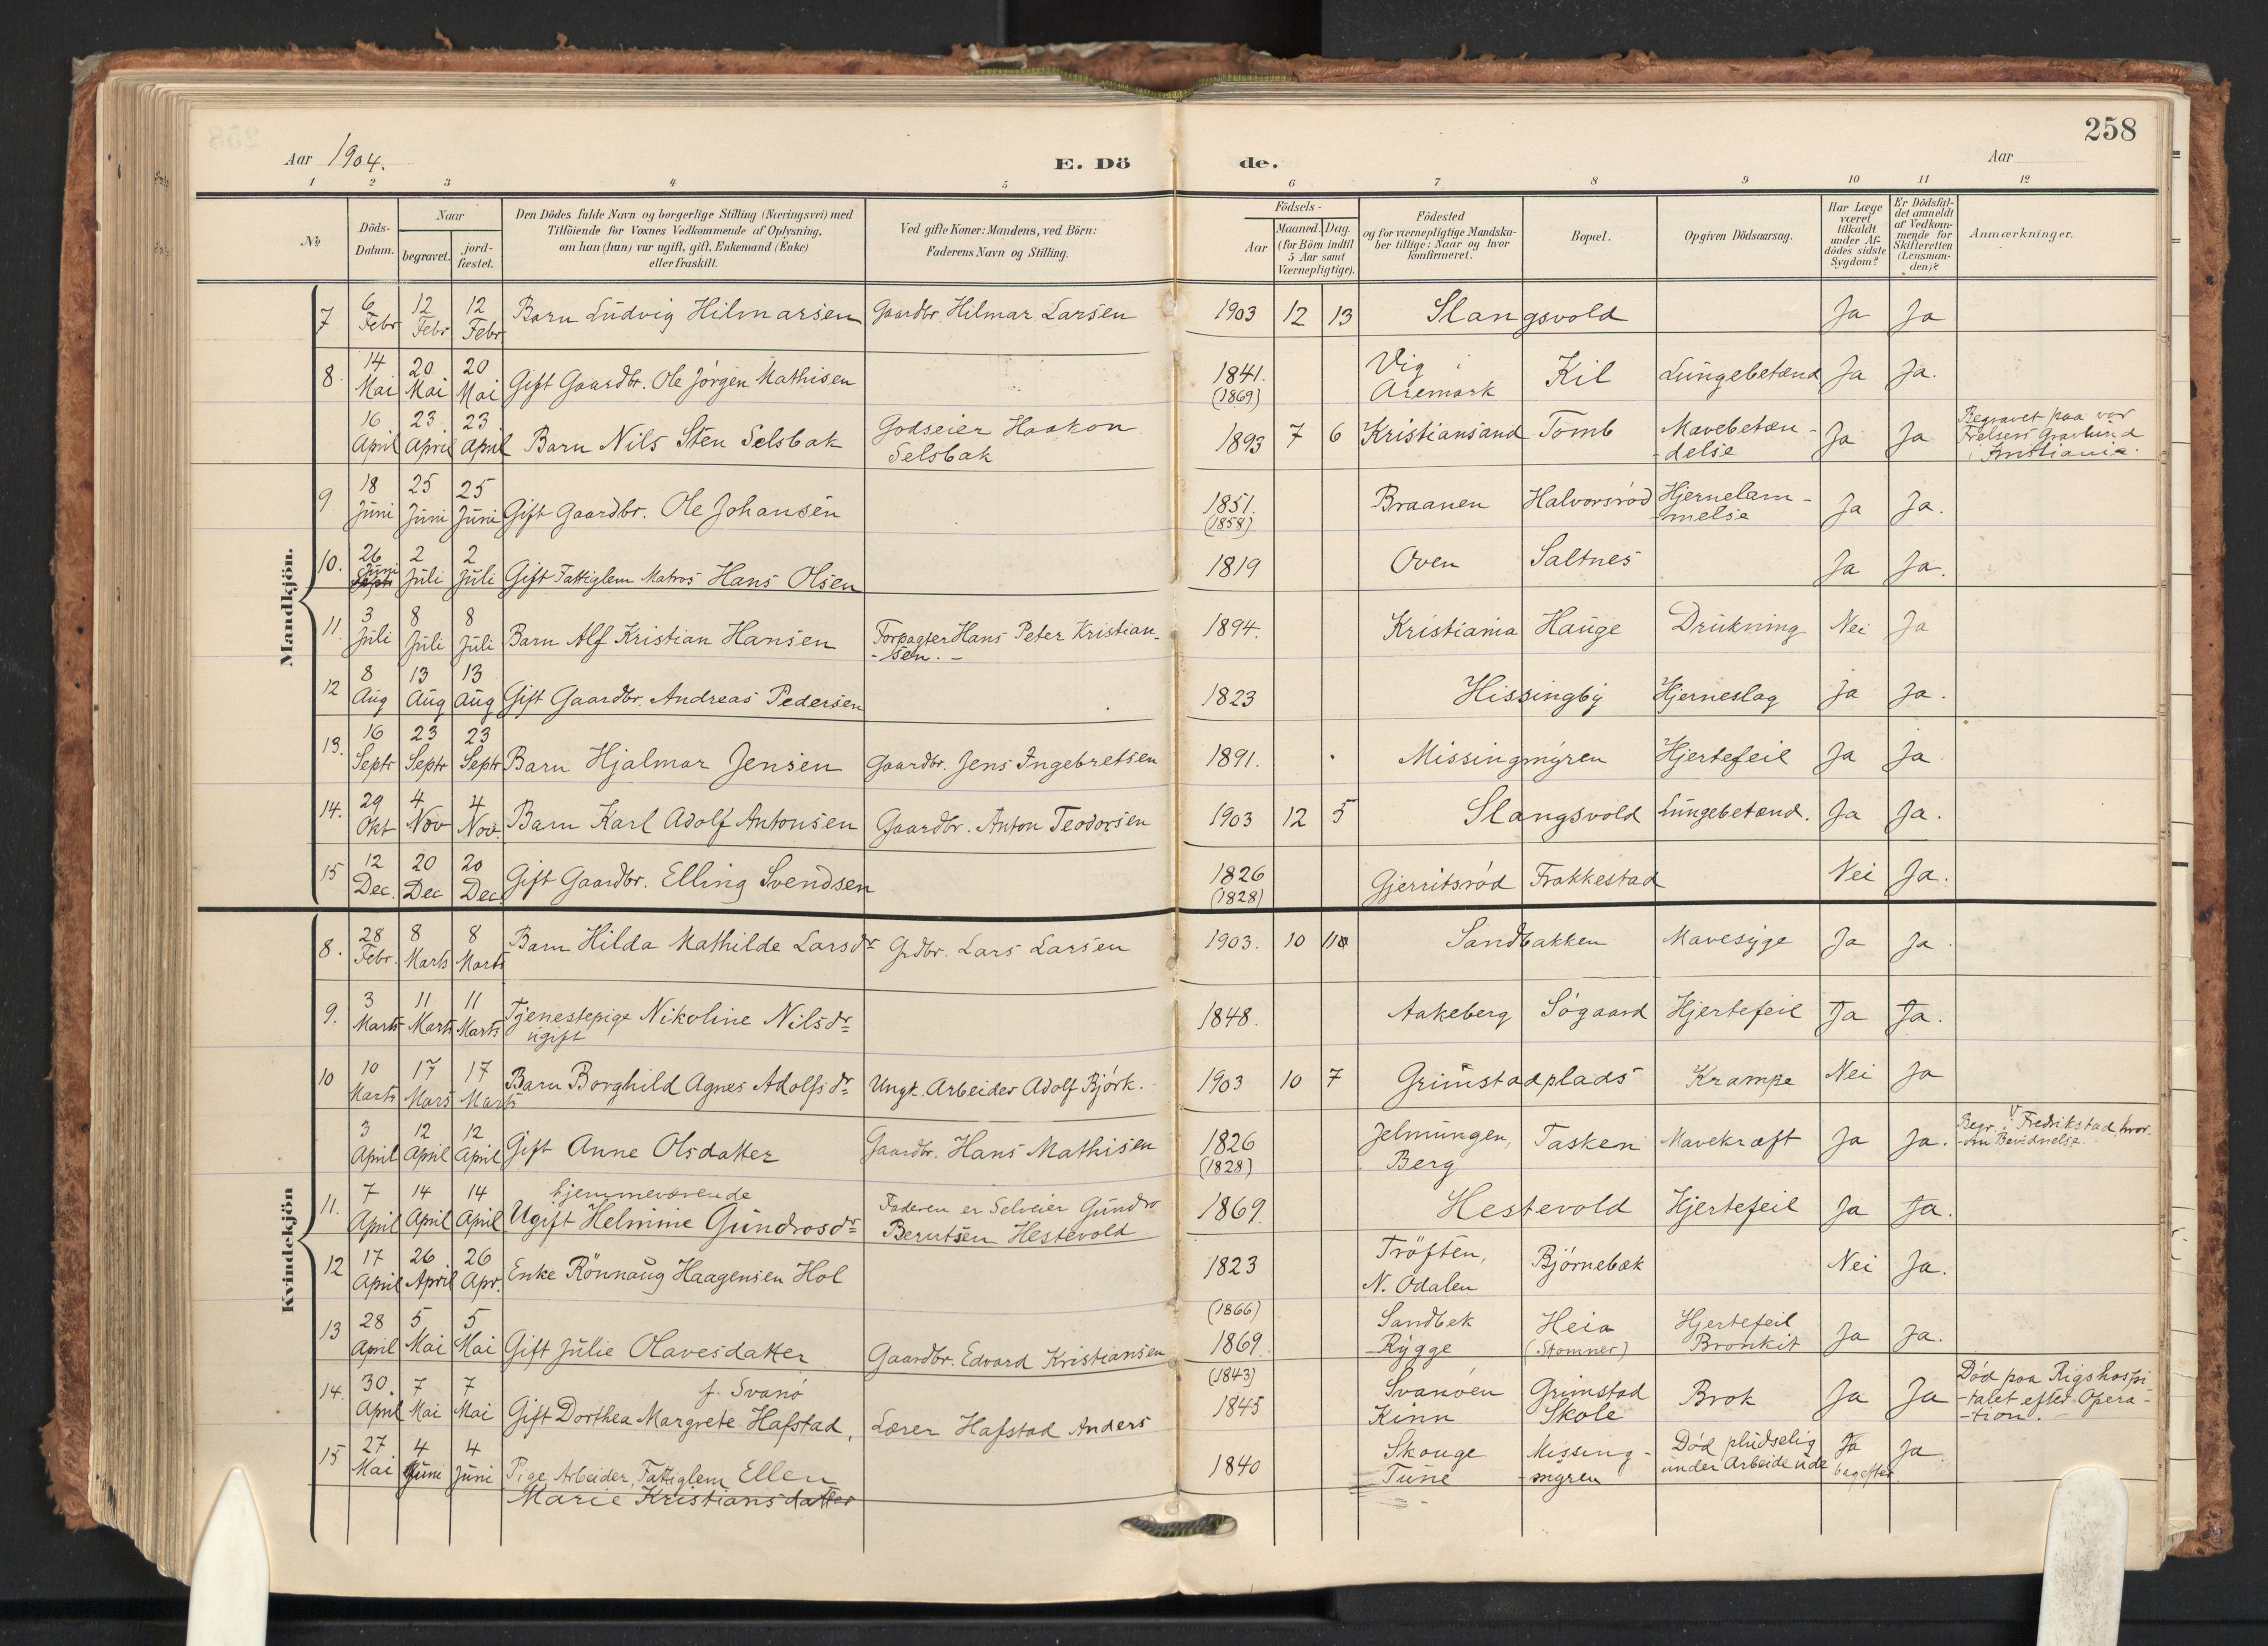 258
Aar 1904. E. Dö de. Aar
1 2 3 4 5 6 7 8 9 10 11 12
No
Döds-Datum.
Naar
begravet.
jord-fæstet.
Den Dödes fulde Navn og borgerlige Stilling (Næringsvei) med
Tilföiende for Voxnes Vedkommende af Oplysning,
om han (hun) var ugift, gift, Enkemand (Enke)
eller fraskilt.
Ved gifte Koner: Mandens, ved Börn:
Faderens Navn og Stilling.
Födsels-
Aar
Maaned. Dag.
(for Börn indtil
5 Aar samt
Værnepligtige).
Födested
og for værnepligtige Mandska-
ber tillige: Naar og hvor
konfirmeret.
Bopæl.
Opgiven Dödsaarsag.
Har Læge
været
tilkaldt
under Af-
dödes sidste
Sygdom?
Er Dödsfal-
det anmeldt
af Vedkom-
mende for
Skifteretten
(Lensman-
den)?
Anmærkninger.
Mandkjön.
7 6 Febr 12 Febr 12 Febr. Barn Ludvig Hilmarsen Gaardbr. Hilmar Larsen 1903 12 13 Slangsvold Ja Ja
8. 14 Mai 20 Mai 20 Mai Gift Gaardbr. Ole Jörgen Mathisen 1841. (1869) Vig i Aremark Kil Lungebetænd Ja Ja.
16 April 23 April 23 April Barn Nils Sten Selsbak Godseier Haakon Selsbak 1893 7 6 Kristiansand Tomb Mavebetæn-delse Ja Ja Begravet paa vor Frelsers Gravlund i Kristiania.
9 18 Juni 25 Juni 25 Juni Gift Gaardbr. Ole Johansen 1851. (1858) Braanen Halvorsröd Hjernelam-melse Ja Ja.
10. 26 Juni 2 Juli 2 Juli Gift Fattiglem Matros Hans Olsen 1819 Oven Saltnes Ja Ja.
11. 3 Juli 8 Juli 8 Juli Barn Alf Kristian Hansen Forpagter Hans Peter Kristian-sen. 1894. Kristiania Hauge Drukning Nei Ja
12 8 Aug 13 Aug 13 Aug Gift Gaardbr. Andreas Pedersen 1823 Hissingby Hjerneslag Ja Ja.
13. 16 Septr 23 Septr 23 Septr Barn Hjalmar Jensen Gaardbr. Jens Ingebretsen 1891. Missingmyren Hjertefeil Ja Ja
14. 29 Okt 4 Nov 4 Nov. Barn Karl Adolf Antonsen Gaardbr. Anton Teodorsen 1903 12 5 Slangsvold Lungebetænd. Ja Ja.
15 12 Dec. 20 Dec 20 Dec. Gift Gaardbr. Elling Svendsen 1826 (1828) Gjerritsröd Frakkestad Nei Ja.
Kvindekjön
8. 28 Febr. 8 Marts 8 Marts Barn Hilda Mathilde Larsdr Grdbr. Lars Larsen 1903. 10 Sandbakken Mavesyge Ja Ja.
9. 3 Marts 11 Marts 11 Marts Tjenestepige Nikoline Nilsdr ugift 1848. Aakeberg Sögaard Hjertefeil Ja Ja.
10 10 Marts 17 Mars 17 Marts Barn Borghild Agnes Adolfsdr Ungk. Arbeider Adolf Björk. 1903 10 7 Grimstadplads Krampe Nei Ja
3 April 12 April 12 April Gift Anne Olsdatter Gaardbr. Hans Mathisen 1826 (1828) Jelmungen, Berg Tasken Mavekræft Ja Ja. Begr. i V. Fredrikstad, hvor-om Bevidnelse.
11. 7 April 14 April 14 April hjemmeværende
Ugift Helmine Gundrosdr Faderen er Selveier Gundro Berntsen Hestevold 1869. Hestevold Hjertefeil Ja Ja.
12 17 April 26 April 26 Apr. Enke Rönnaug Haagensen Hol 1823 Tröften, N. Odalen Björnebæk Nei Ja.
13 28 April 5 Mai 5 Mai Gift Julie Olavesdatter Gaardbr. Edvard Kristiansen (1866) 1869. Sandbek Rygge Heia (Stomner) Hjertefeil Bronkit Ja Ja.
14. 30. April 7 Mai 7 Mai f. Svanö
Gift Dorthea Margrete Hafstad, Lærer Hafstad Anders (1843) 1845 Svanöen Kinn Grimstad Skole Brok Ja Ja Död paa Rigshospi-talet efter Opera-tion.
15 27 Mai 4 Juni 4 Juni Pige, Arbeider, Fattiglem Ellen
Marie Kristiansdatter 1840 Skouge Tune Missing-myren Död pludselig under Arbeide ude Ja bagefter Ja